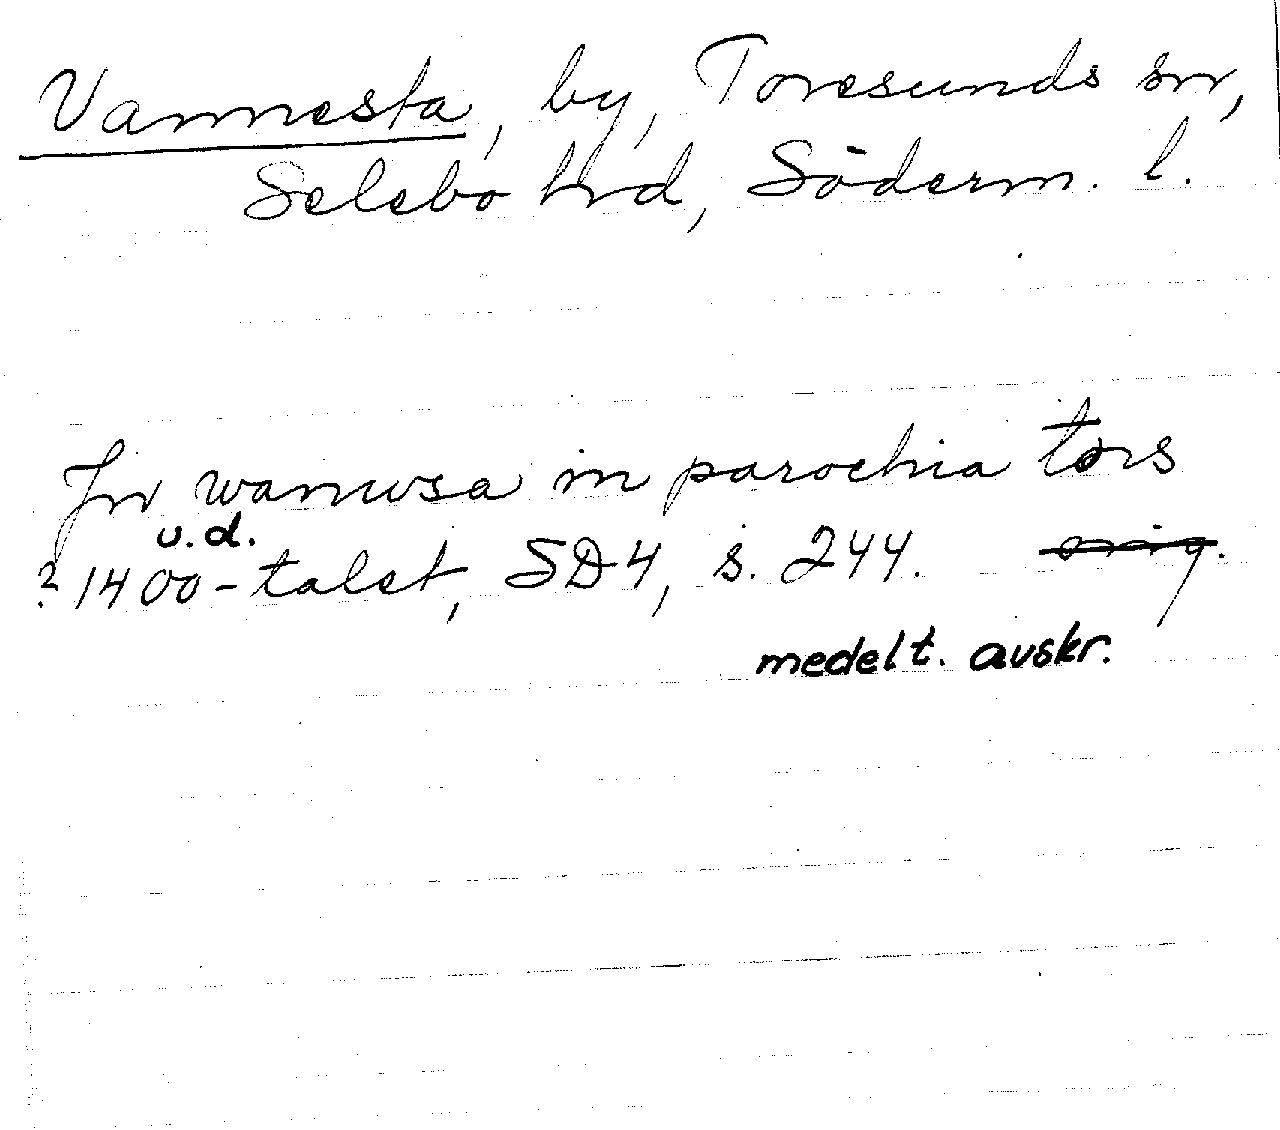 Vannesta, by, Toresunds sn,
Selebo hrd, Söderm. l.
Jn wanusa in parochia tors
u.d.
? 1400-talet, SD4, s. 244. orig.
medelt. avskr.